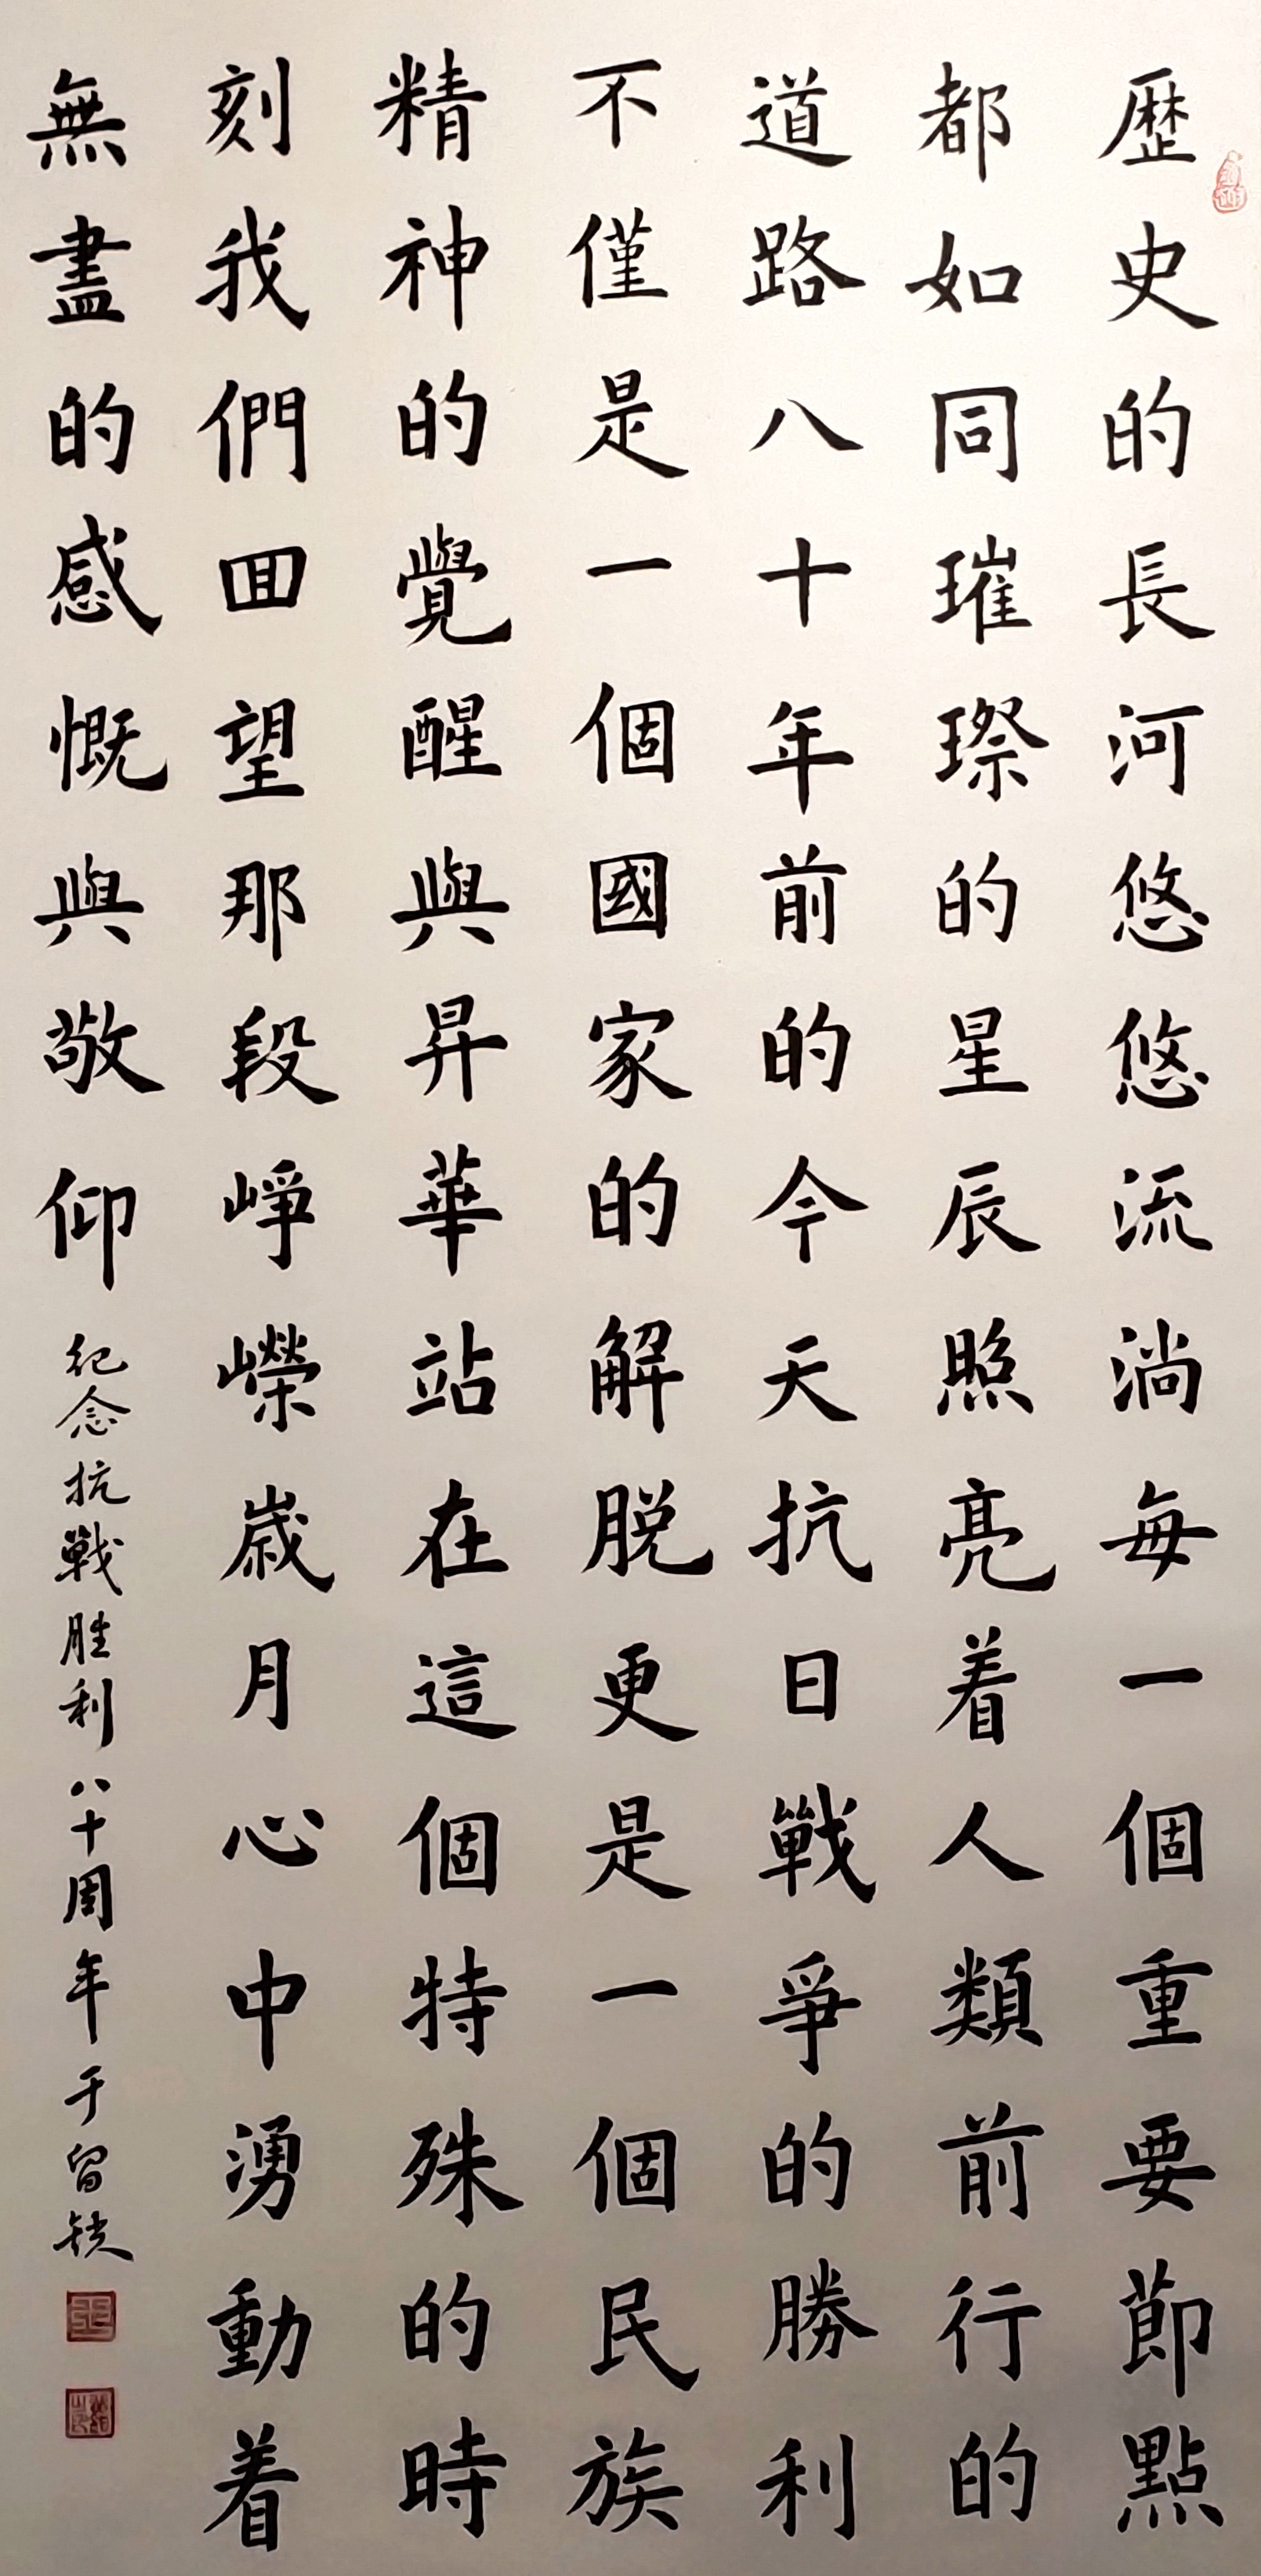 歷史的長河悠悠流淌每一個重要節點
都如同璀璨的星辰照亮着人類前行的
道路八十年前的今天抗日戰爭的勝利
不僅是一個國家的解脱更是一個民族
精神的覺醒與昇華站在這個特殊的時
刻我們回望那段崢嶸歲月心中湧動着
無盡的感慨與敬仰
纪念抗戰胜利八十周年于留鎖